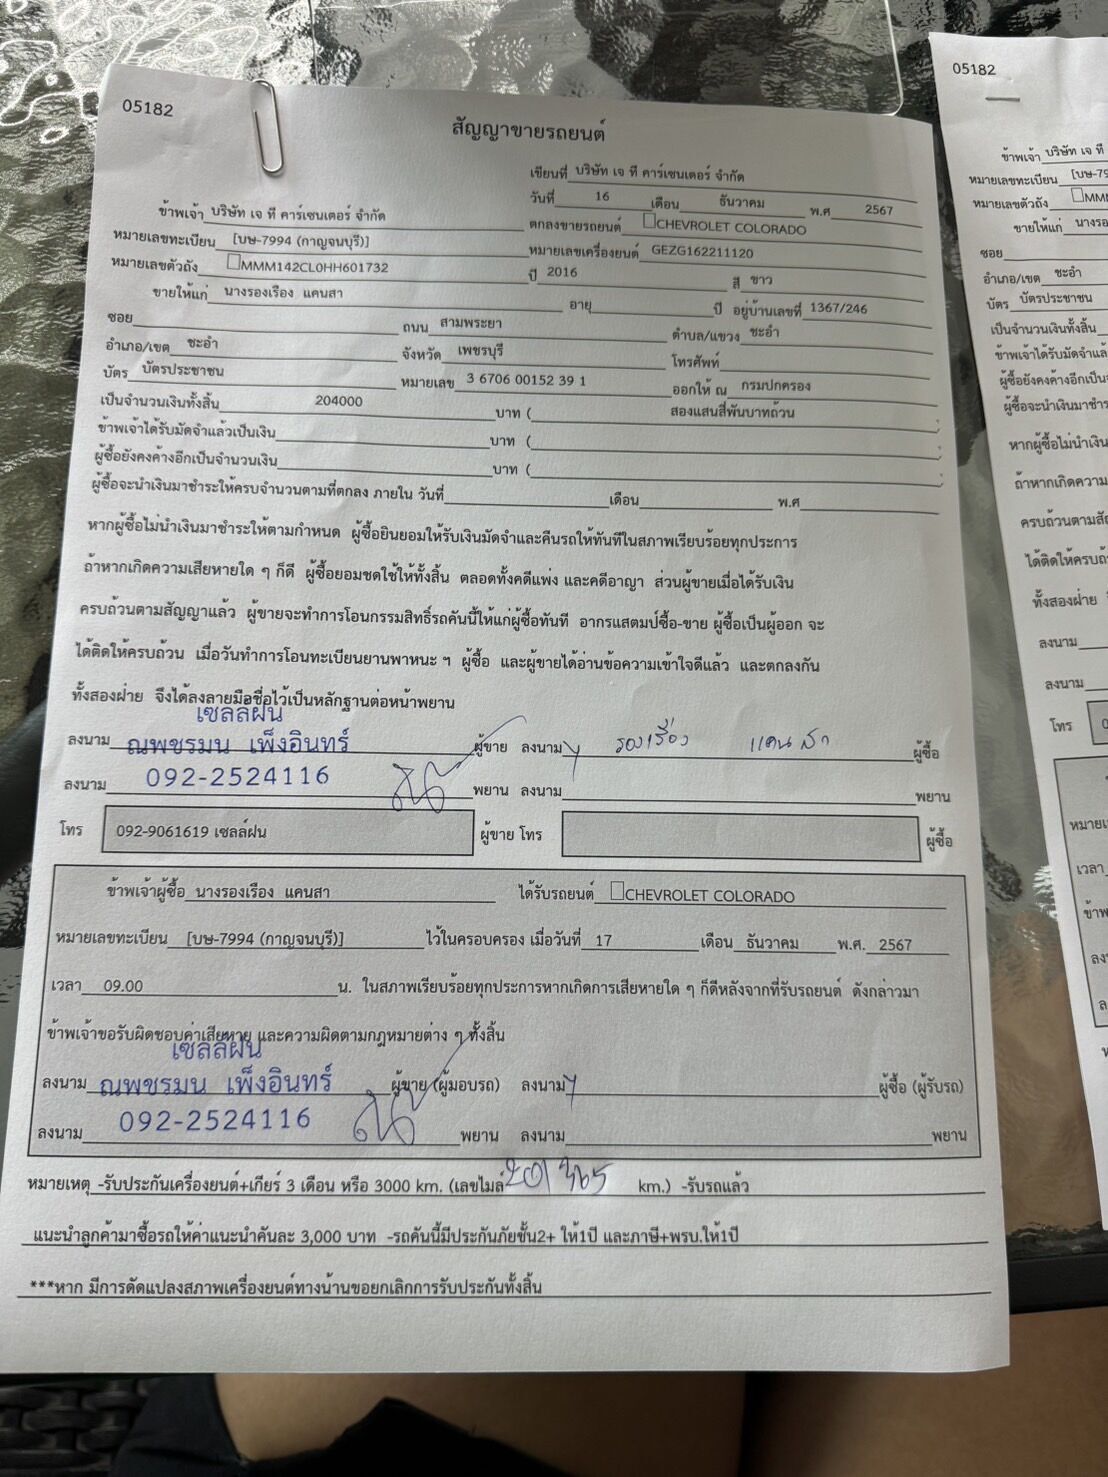 05182
สัญญาขายรถยนต์
เขียนที่ บริษัท เจ ที คาร์เซนเตอร์ จำกัด
วันที่ 16 เดือน ธันวาคม พ.ศ 2567
ข้าพเจ้า บริษัท เจ ที คาร์เซนเตอร์ จำกัด ตกลงขายรถยนต์ CHEVROLET COLORADO
หมายเลขทะเบียน [บษ-7994 (กาญจนบุรี)] หมายเลขเครื่องยนต์ GEZG162211120
หมายเลขตัวถัง MMM142CL0HH601732 ปี 2016 สี ขาว
ขายให้แก่ นางรองเรือง แคนสา อายุ ปี อยู่บ้านเลขที่ 1367/246
ซอย ถนน สามพระยา ตำบล/แขวง ชะอำ
อำเภอ/เขต ชะอำ จังหวัด เพชรบุรี โทรศัพท์
บัตร บัตรประชาชน หมายเลข 3 6706 00152 39 1 ออกให้ ณ กรมปกครอง
เป็นจำนวนเงินทั้งสิ้น 204000 บาท ( สองแสนสี่พันบาทถ้วน )
ข้าพเจ้าได้รับมัดจำแล้วเป็นเงิน บาท ( )
ผู้ซื้อยังคงค้างอีกเป็นจำนวนเงิน บาท ( )
ผู้ซื้อจะนำเงินมาชำระให้ครบจำนวนตามที่ตกลง ภายใน วันที่ เดือน พ.ศ
หากผู้ซื้อไม่นำเงินมาชำระให้ตามกำหนด ผู้ซื้อยินยอมให้รับเงินมัดจำและคืนรถให้ทันทีในสภาพเรียบร้อยทุกประการ
ถ้าหากเกิดความเสียหายใด ๆ ก็ดี ผู้ซื้อยอมชดใช้ให้ทั้งสิ้น ตลอดทั้งคดีแพ่ง และคดีอาญา ส่วนผู้ขายเมื่อได้รับเงิน
ครบถ้วนตามสัญญาแล้ว ผู้ขายจะทำการโอนกรรมสิทธิ์รถคันนี้ให้แก่ผู้ซื้อทันที อากรแสตมป์ซื้อ-ขาย ผู้ซื้อเป็นผู้ออก จะ
ได้ติดให้ครบถ้วน เมื่อวันทำการโอนทะเบียนยานพาหนะ ฯ ผู้ซื้อ และผู้ขายได้อ่านข้อความเข้าใจดีแล้ว และตกลงกัน
ทั้งสองฝ่าย จึงได้ลงลายมือชื่อไว้เป็นหลักฐานต่อหน้าพยาน
เซลล์ฝน
ลงนาม ณพชรมน เพ็งอินทร์ ผู้ขาย ลงนาม รองเรือง แคนสา ผู้ซื้อ
ลงนาม 092-2524116 พยาน ลงนาม พยาน
โทร 092-9061619 เซลล์ฝน ผู้ขาย โทร ผู้ซื้อ
ข้าพเจ้าผู้ซื้อ นางรองเรือง แคนสา ได้รับรถยนต์ CHEVROLET COLORADO
หมายเลขทะเบียน [บษ-7994 (กาญจนบุรี)] ไว้ในครอบครอง เมื่อวันที่ 17 เดือน ธันวาคม พ.ศ. 2567
เวลา 09.00 น. ในสภาพเรียบร้อยทุกประการหากเกิดการเสียหายใด ๆ ก็ดีหลังจากที่รับรถยนต์ ดังกล่าวมา
ข้าพเจ้าขอรับผิดชอบค่าเสียหาย และความผิดตามกฎหมายต่าง ๆ ทั้งสิ้น
เซลล์ฝน
ลงนาม ณพชรมน เพ็งอินทร์ ผู้ขาย (ผู้มอบรถ) ลงนาม ผู้ซื้อ (ผู้รับรถ)
ลงนาม 092-2524116 พยาน ลงนาม พยาน
หมายเหตุ -รับประกันเครื่องยนต์+เกียร์ 3 เดือน หรือ 3000 km. (เลขไมล์ 201365 km.) -รับรถแล้ว
แนะนำลูกค้ามาซื้อรถให้ค่าแนะนำคันละ 3,000 บาท -รถคันนี้มีประกันภัยชั้น2+ ให้1ปี และภาษี+พรบ.ให้1ปี
***หาก มีการดัดแปลงสภาพเครื่องยนต์ทางน้านขอยกเลิกการรับประกันทั้งสิ้น
05182
ข้าพเจ้า บริษัท เจ ที
หมายเลขทะเบียน [บษ-79
หมายเลขตัวถัง MMM
ขายให้แก่ นางรอง
ซอย
อำเภอ/เขต ชะอำ
บัตร บัตรประชาชน
เป็นจำนวนเงินทั้งสิ้น
ข้าพเจ้าได้รับมัดจำแล้
ผู้ซื้อยังคงค้างอีกเป็นจำ
ผู้ซื้อจะนำเงินมาชำระให้
หากผู้ซื้อไม่นำเงิน
ถ้าหากเกิดความ
ครบถ้วนตามสั
ได้ติดให้ครบถ้ว
ทั้งสองฝ่าย
ลงนาม
ลงนาม
โทร 0
หมายเ
เวลา
ข้าพ
ลง
ล
ห